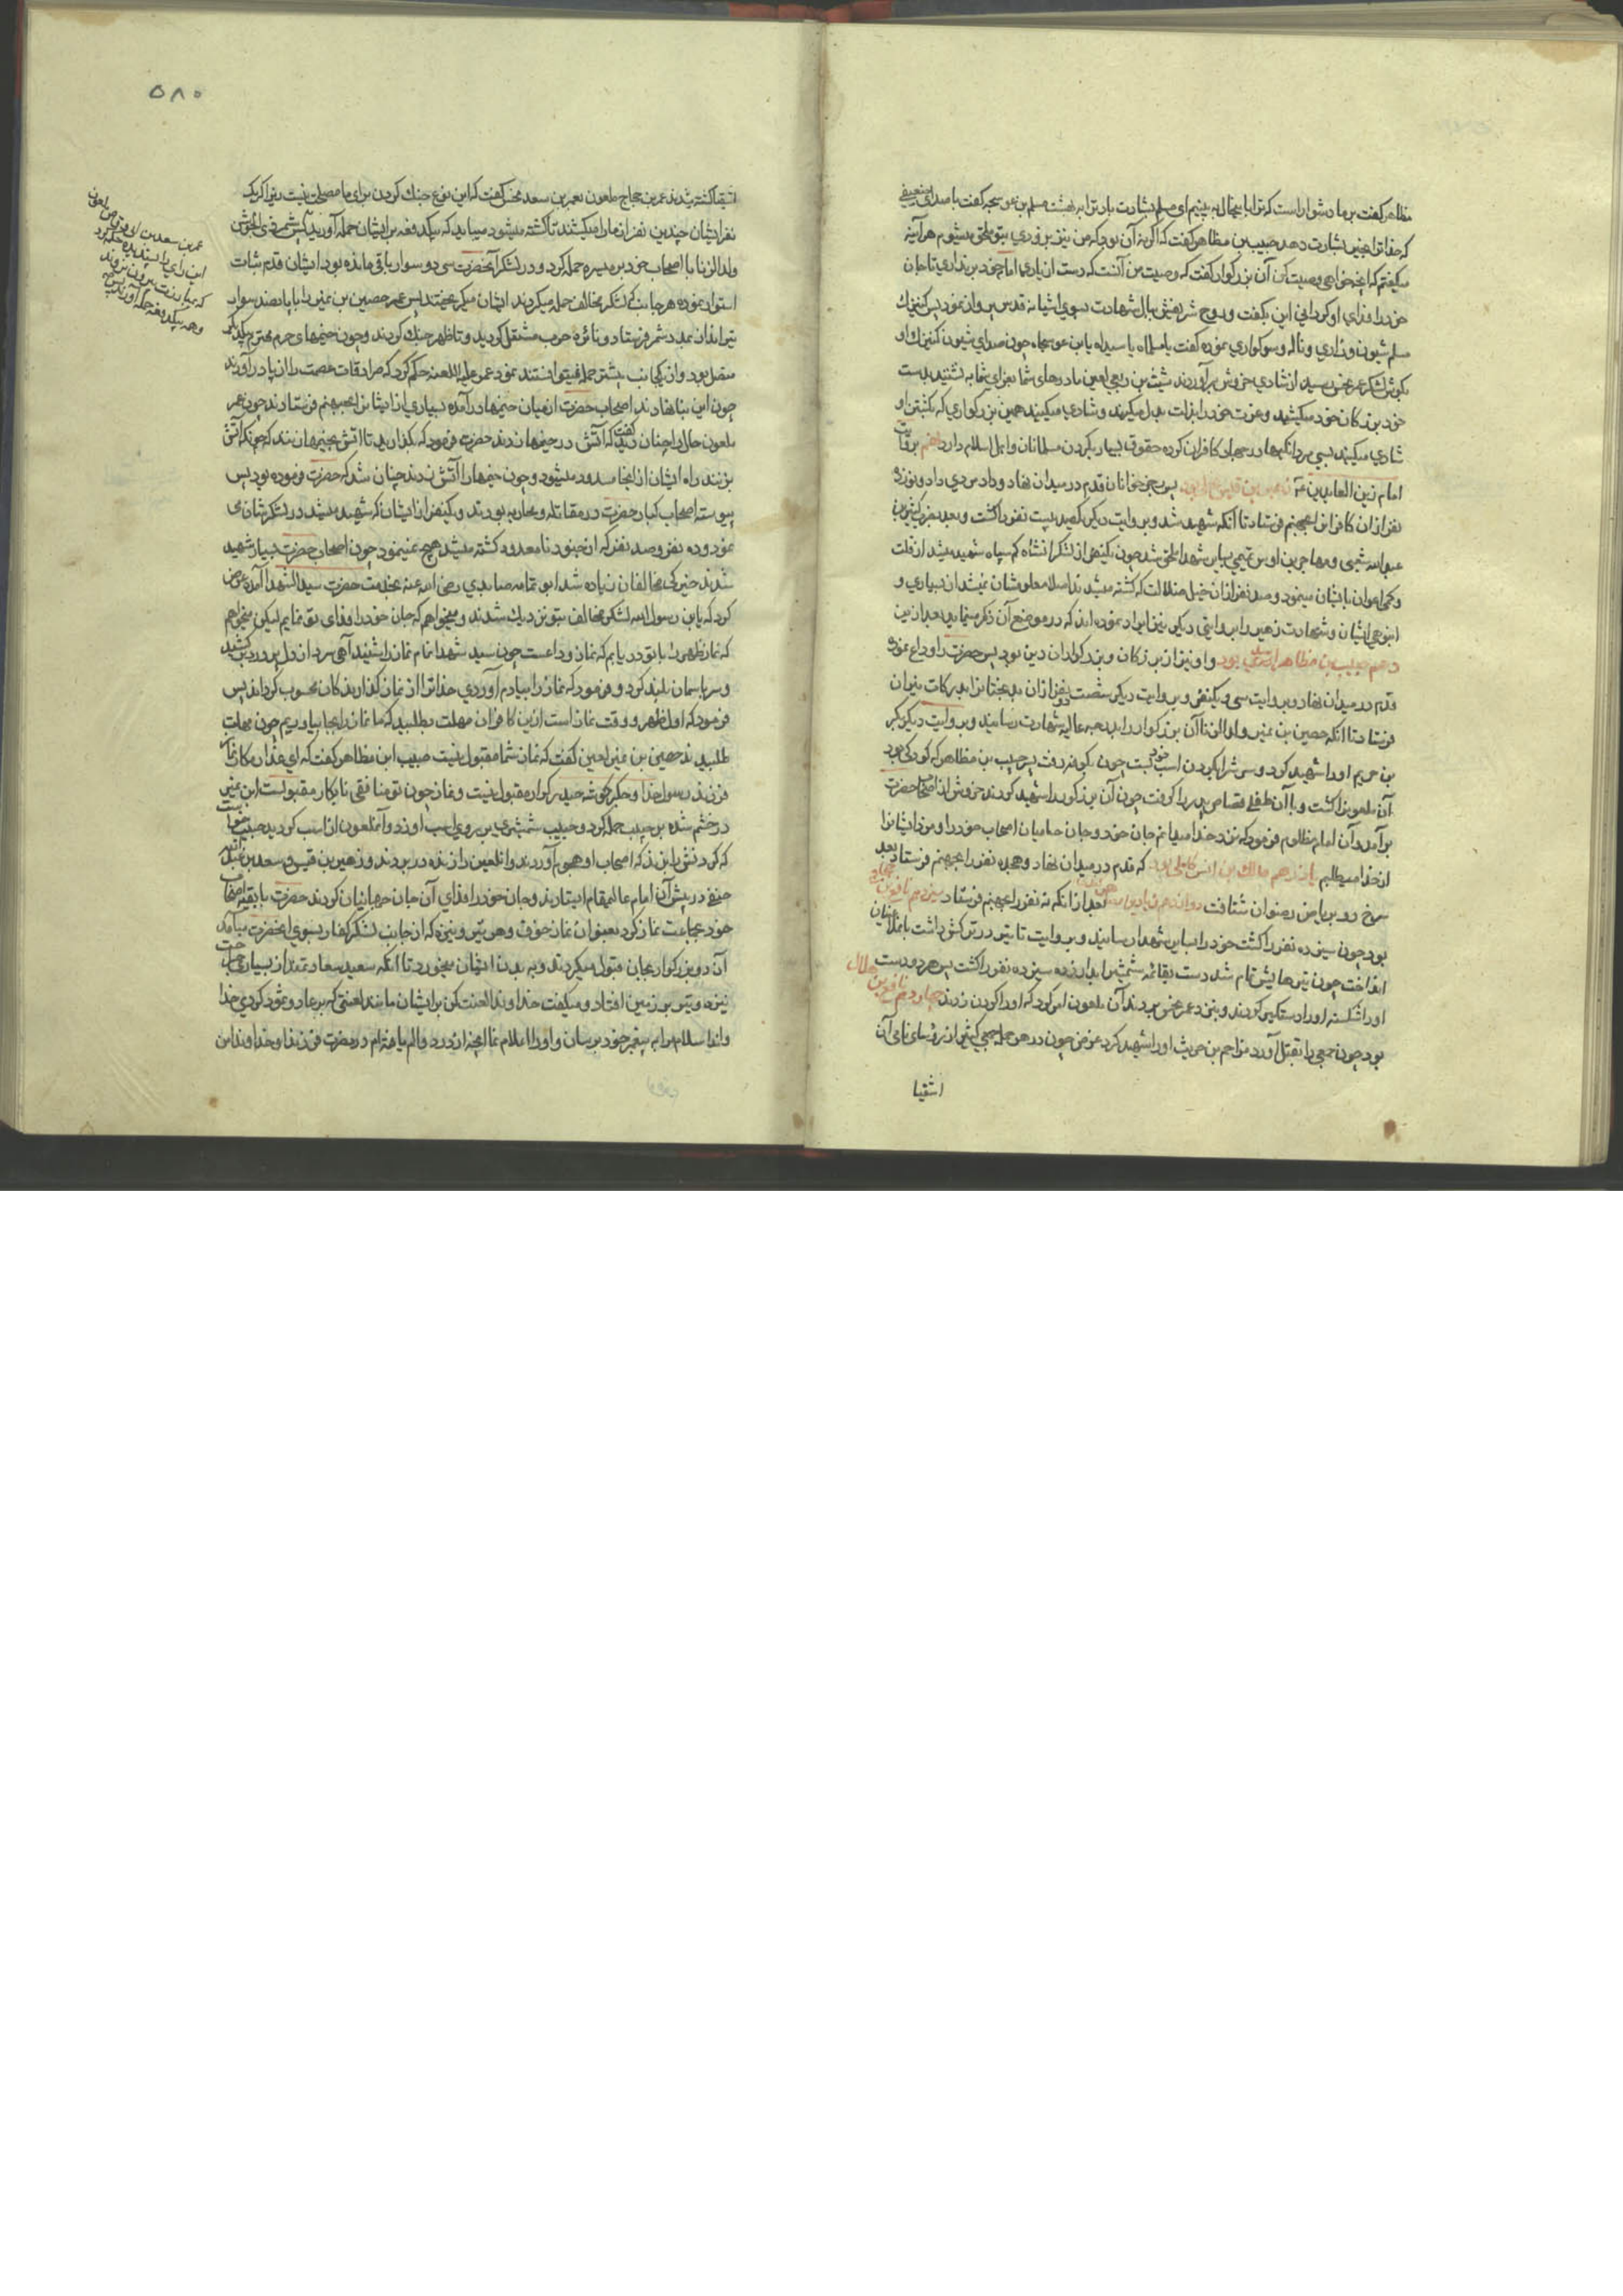 مظاهر گفت بر ما دشوار است که ترا باینحال به بینیم ای مسلم بشارت باد ترا به بهشت مسلم بن عوسجه گفت با صدای ضعیفی
که خدا ترا بخیر بشارت دهد حبیب بن مظاهر گفت که اگر نه آن بود که من نیز بزودی بتو ملحق میشوم هر آینه
میگفتم که انچه خواهی وصیت کن آن بزرگوار گفت که وصیت من آنست که دست از یاری امام خود بر نداری تا جان
خود را فدای او کردانی این بگفت و روح شریفش ببال شهادت بسوی اشیانه قدس پرواز نمود پس کنیزک
مسلم شیون و زاری و ناله و سوکواری نموده گفت یا مسلماه یا سیداه یا بن عوسجاه چون صدای شیون کنیزک او
بکوش لشکر عمر نحس رسید از شادی خروش برآوردند شیث بن ربعی لعین مادرهای شما بعزای شما به نشنید بدست
خود بزرکان خود میکشید و عزت خود را بذلت بدل میکنید و شادی میکنید همین بزرکواری که بکشتن او
شادی میکنید بسی مردانکیها در جهاد کافران کرده حقوق بسیار بکردن مسلمانان و اهل اسلام دارد
امام زین العابدین پس جوانان قدم در میدان نهاد و داد مردی داد و نوزده
نفر از ان کافران بجهنم فرستاد تا آنکه شهید شد و بروایت دیکر یکصد بیست نفر را کشت و بعد
عبدالله شعبی و مهاجر بن اوس تمیمی بسایر شهدا ملحق شد چون یکنفر از لشکر انشاه کم سپاه شهید میشد از قلت
و کمی اعوان بایشان مینمود و صد نفر از ان خیل ضلالت که کشته میشدند اصلا معلومشان نمیشد از بسیاری و
انبوهی ایشان و شهادت زهیر را بروایتی دیکر نیز ایراد نموده اند که در موضع آن ذکر مینمایم بعد از این
دهم حبیب بن مظاهر اسدی بود و او نیز از بزرکان و بزرکواران دین بود پس حضرت را وداع نموده
قدم در میدان نهاد و بروایت سی و یکنفر و بروایت دیکر شصت و دو نفر از ان بدبختانرا بدرکات نیران
فرستاد تا انکه حصین بن نمیر ولدالزنا آن بزرکوار را بدرجه عالیه شهادت رسانید و بروایت دیکر
بن صریم او را شهید کرد و سر شرا بکردن اسب خود بست چون بکوفه رفت پسر حبیب بن مظاهر که کودکی بود
آن ملعونرا کشت و با آن طفلی قصاص پدر را کرفت چون آن بزرکوار را شهید کردند خروش از اصحاب حضرت
برآمد و آن امام مظلوم فرمود که نزد خدا میدانم جان خود و جان حامیان اصحاب خود را و مزد ایشانرا
از خدا میطلبم یازدهم مالک بن انس کاهلی بود که قدم در میدان نهاد و هجده نفر را بجهنم فرستاد بعد
سرخ رو بریاض رضوان شتافت دوازدهم بعد از انکه نه نفر را بجهنم فرستاد سیزدهم نافع بن
بود چون سیزده نفر را کشت خود را بسایر شهدا رسانید و بروایت تا تیر در ترکش داشت
انداخت چون تیرهایش تمام شد دست بقائمه شمشیر ابدار زده سیزده نفر را کشت پس هر دو دست
او را شکسته او را دستکیر کردند و بنزد عمر نحس بردند آن ملعون امر کرد که او را کردن زدند چهاردهم نافع بن هلال
بود چون جمعی را بقتل آورد مزاحم بن حریث او را شهید کرد غرض چون در هر حمله جمعی کثیر از رؤسای نامی آن
اشقیا
۵۸۰
اشقیا کشته شدند عمر بن حجاج ملعون بعمر بن سعد نحس گفت که این نوع جنک کردن برای ما مصلحت نیست زیرا که یک
نفر ایشان چندین نفر از ما را میکشند تا کشته میشود میباید که بیکدفعه بر ایشان حمله آورید پس شمر ذی الجوشن
ولدالزنا با اصحاب خود بر میسره حمله کرد و در لشکر آنحضرت سی و دو سوار باقی مانده بود ایشان قدم ثبات
استوار نموده هر جانب که لشکر مخالف حمله میکردند ایشان میکریختند پس عمر حصین بن نمیر را با پانصد سوار
تیر انداز بمدد شمر فرستاد و نائره حرب مشتعل کردید و تا ظهر جنک کردند و چون خیمهای حرم محترم بیکدیکر
متصل بود و از یکجانب بیشتر حمله نمیتوانستند نمود عمر علیه اللعنه حکم کرد که سرادقات عصمت را از پا در آورند
چون این بنا نهادند اصحاب حضرت از میان خیمها درآمده بسیاری از ایشانرا بجهنم فرستادند چون عمر
ملعون حال را چنان دید گفت که آتش در خیمها زدند حضرت فرمود که بگذارید تا اتش بخیمها زنند که چونکه آتش
بزنند راه ایشان از اینجا مسدود میشود و چون خیمها را آتش زدند چنان شد که حضرت فرموده بود پس
پیوسته اصحاب کبار حضرت در مقاتله و محاربه بودند و یکنفر از ایشان که شهید میشد در لشکر شان
نمود و ده نفر و صد نفر که از جنود نامعدود کشته میشد هیچ نمینمود چون اصحاب حضرت بسیار شهید
شدند خیرکی مخالفان زیاده شد ابو تمامه صایدی رضی الله عنه بخدمت حضرت سید الشهدا آمده عرض
کرد که یابن رسول الله لشکر مخالف بتو نزدیک شدند و میخواهم که جان خود را فدای تو نمایم لیکن میخواهم
که نماز ظهر را با تو دریابم که نماز وداعست چون سید شهدا نام نماز را شنید آهی سرد از دل پر درد برکشید
و سر باسمان بلند کرد و فرمود که نماز را بیادم آوردی خدا ترا از نماز گذارندکان محسوب کرداند پس
فرمود که اول ظهر و وقت نماز است ازین کافران مهلت بطلبید که ما نماز را بجا بیاوریم چون مهلت
طلبیدند حصین بن نمیر لعین گفت که نماز شما مقبول نیست حبیب ابن مظاهر گفت که ای غدار مکار نماز
فرزند رسول خدا و جکرکوشه حیدر کرار مقبول نیست و نماز چون تو منافقی نابکار مقبولست ابن نمیر
در خشم شده بر حبیب حمله کرد و حبیب شمشیری بر روی اسب او زد و آنملعون از اسب کردید حبیب
که کردنش را بزند که اصحاب او هجوم آوردند و انلعین را زنده در بردند و زهیر بن قین و سعد بن عبدالله
حنفی در پیش آن امام عالیمقام ایستادند و جان خود را فدای آن جان جهانیان کردند حضرت با بقیه اصحاب
خود بجماعت نماز کرد بعنوان نماز خوف و هر تیر و نیزه که از جانب لشکر کفار بسوی انحضرت میآمد
آن دو بزرکوار بجان قبول میکردند و به بدن ایشان میخورد تا آنکه سعید سعادتمند از بسیاری
نیزه و تیر بر زمین افتاد و میگفت خداوندا لعنت کن بر ایشان مانند لعنتی که بر عاد و ثمود کردی خدا
وندا سلام مرا به پیغمبر خود برسان و او را اعلام نما انچه از درد و الم یافته ام در نصرت فرزند او خداوندا من
عمر بن سعد بن ابی وقاص لعین
این رای را پسندیده حکم کرد
که بمبارزت بیرون نروند
وهمه بیکدفعه حمله آورند پس